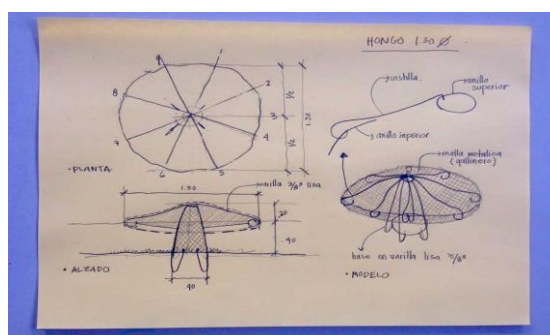 HONGO 1.30 Ø.
9
1
2
8
3
4
7
6
5
1/2
1/2
1.30
• PLANTA
costilla.
anillo
superior
anillo inferior
1.30
varilla 3/8" lisa
20
.40
40
• ALZADO
malla metalica
(gallinero)
base en varilla lisa 3/8"
• MODELO